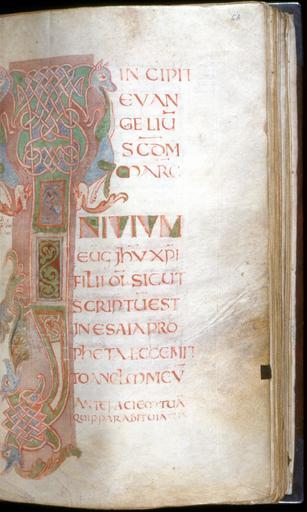 IN CIPIT
EVAN
GELIŪ
SC̄DM
MARC
INITIUM
EUG̅ JHŪ XPI
FILII D̅I SICUT
SCRIPTŪ EST
IN ESAIA PRO
PHETA ECCE MIT
TO ANGLM MEU
ANTE FACIEM TUĀ
QUI PPARABIT UIA